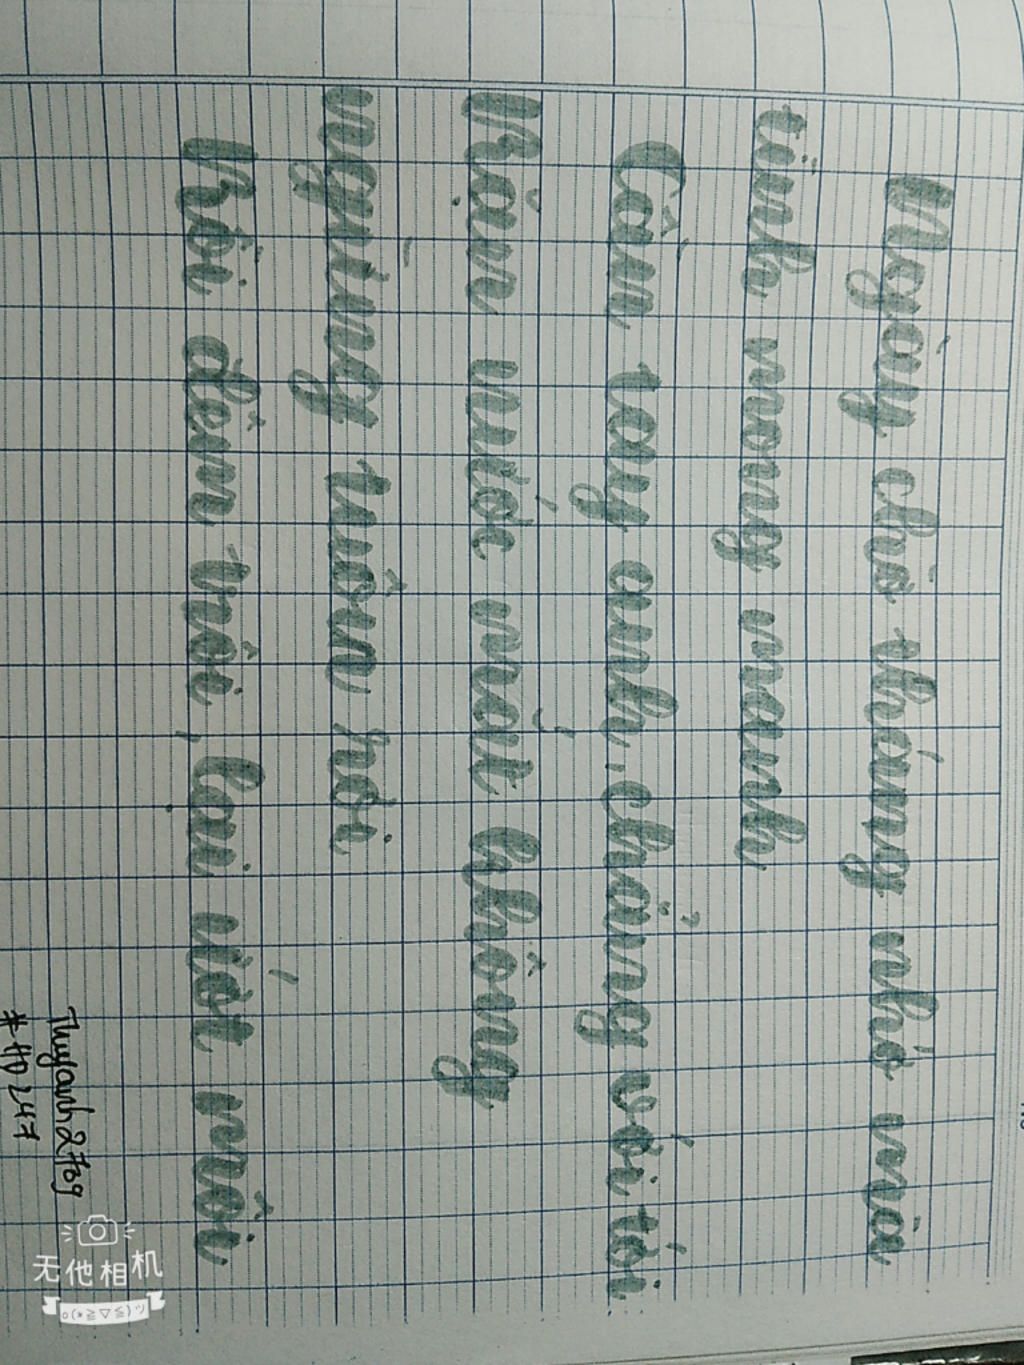 Ngày chờ tháng nhớ mà
tình mong manh
Cầm tay anh, chẳng với tới
Mặn nước mắt không
ngừng tuôn rơi
Rồi đêm trôi, lại ướt môi
Thuyanh2709
无他相机